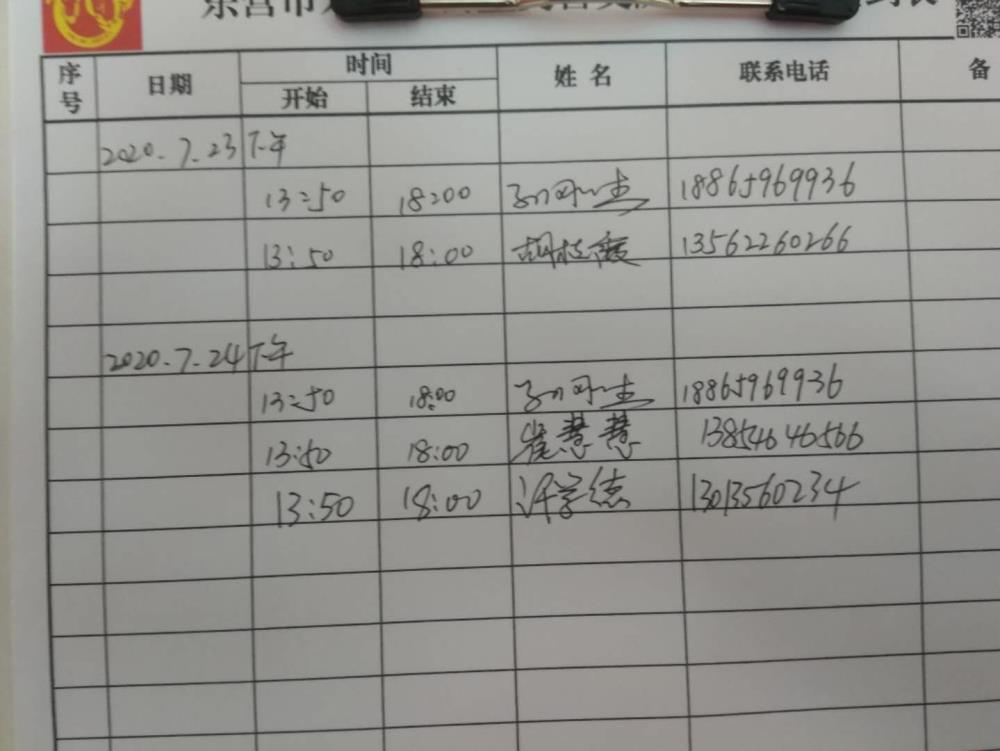 东营市
序号 日期 时间 姓名 联系电话 备
开始 结束
2020.7.23 下午
13:50 18:00 18865969936
13:50 18:00 胡 13562260266
2020.7.24 下午
13:50 18:00 18865969936
13:50 18:00 崔慧慧 13854646566
13:50 18:00 许学德 13013560234